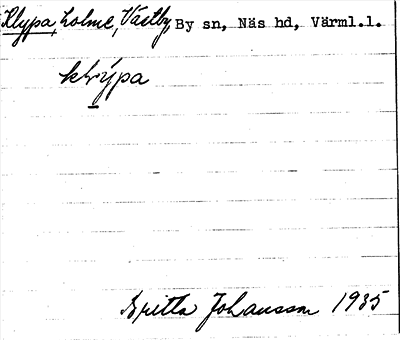 Klypa, holme, Västby, By sn, Näs hd, Värml.l.
klýpa
Britta Johansson 1935